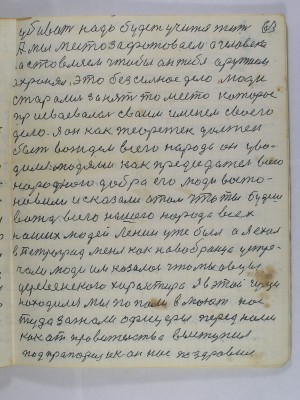 убивать надо будет учится жить 63
А мы место зафотоваем а человека
заставляем чтобы он тебя другом
охранял, это безсильное дело люди
старались занять то место которое
присваевался своим именем своего
дело. Я он как теоретик должен
быть вождем всего народа он уво
дился людями как председател всего
народного добра его люди воспо-
нили и сказали о том что ты будеш
вождь всего нашего народа всех
наших людей Ленин уже был а я ехал
в Петроград меня как новобранца встре
чали люди им казалось что мы овцы
деревенского характера я в этой гуще
находился мы попали в манеж нас
туда загнали офицеры перед нами
как от правительства выступил
подпрапорщик он нас поздравил